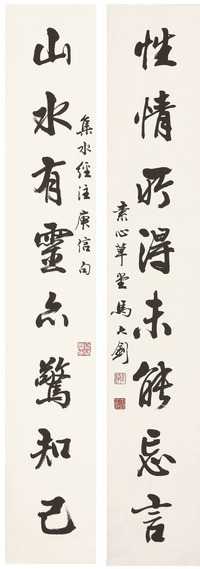 性情所得未能忘言
素心草堂馬大劍
山水有靈亦驚知己
集水經注庾信句